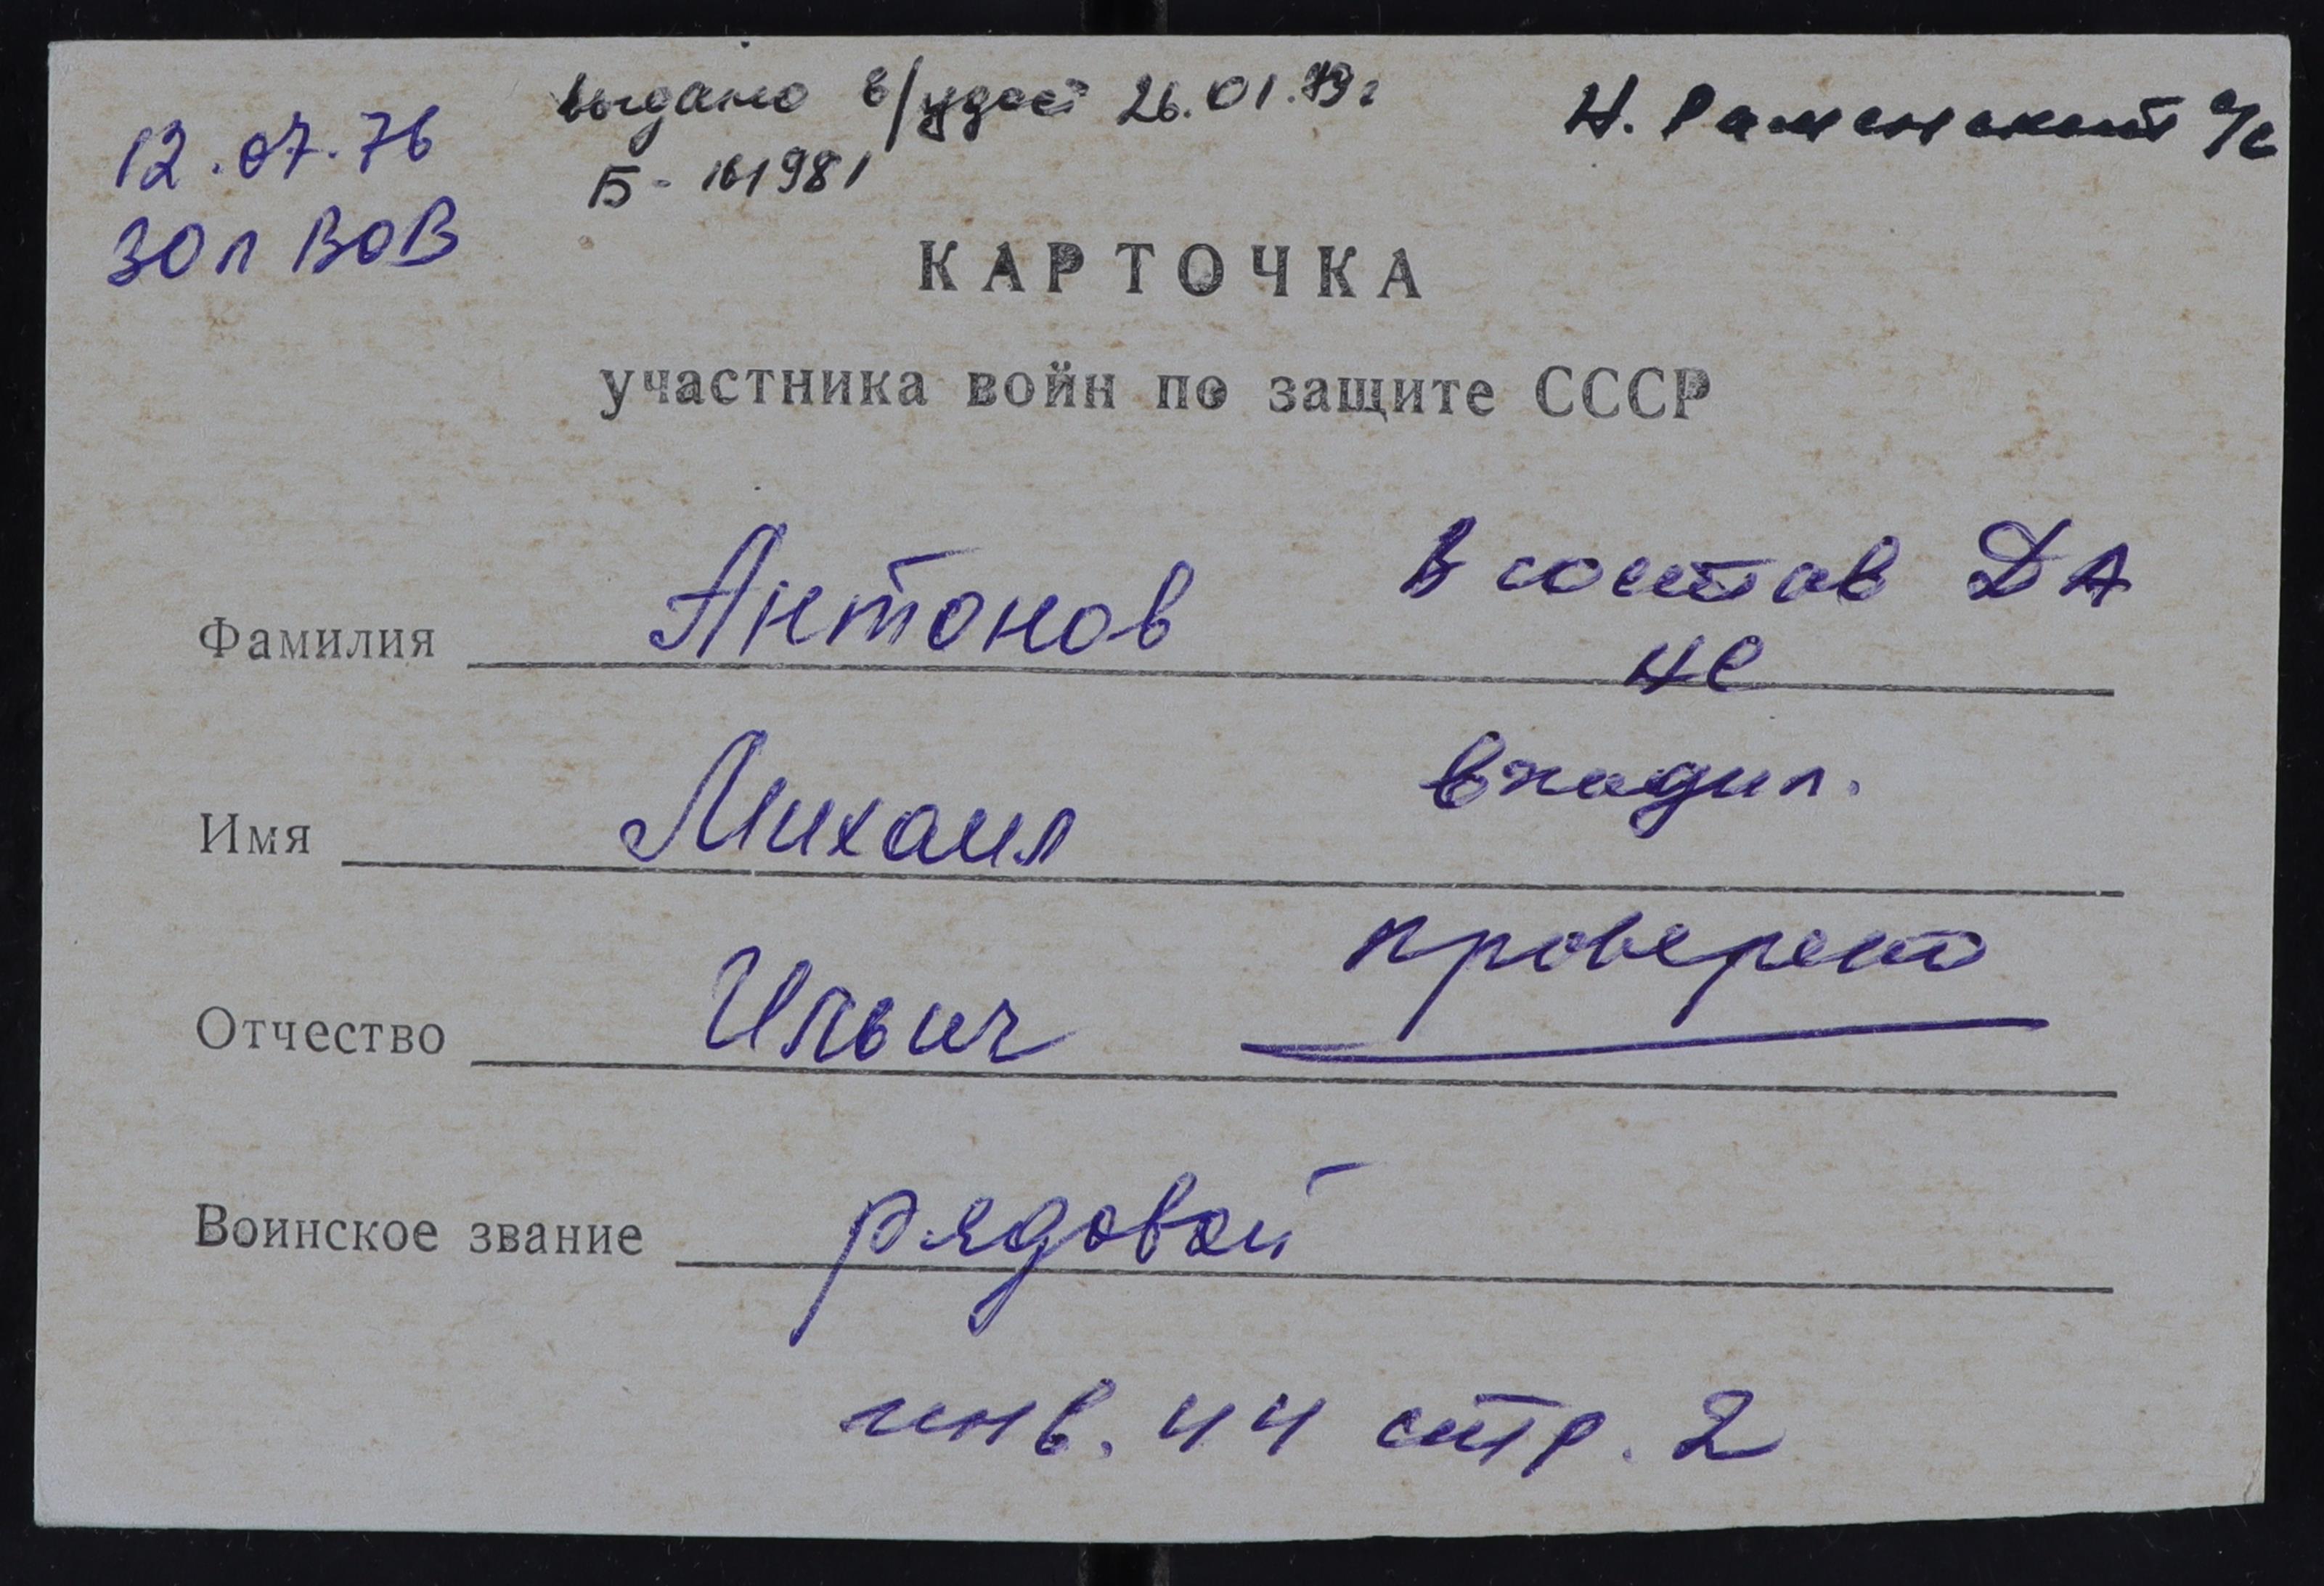 выдано в/удост 26.01.79г
Н. Раменский с/с
12.07.76
Б-161981
30 л ВОВ
КАРТОЧКА
участника войн по защите СССР
Фамилия Антонов
В состав ДА
не
входил.
Имя Михаил
проверено
Отчество Ильич
Воинское звание рядовой
инв. 44 стр. 2